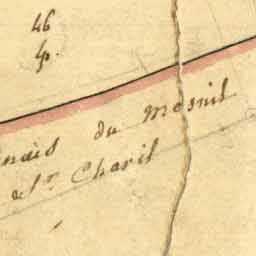 46
4p.
nais du Mesnil
de St Charil